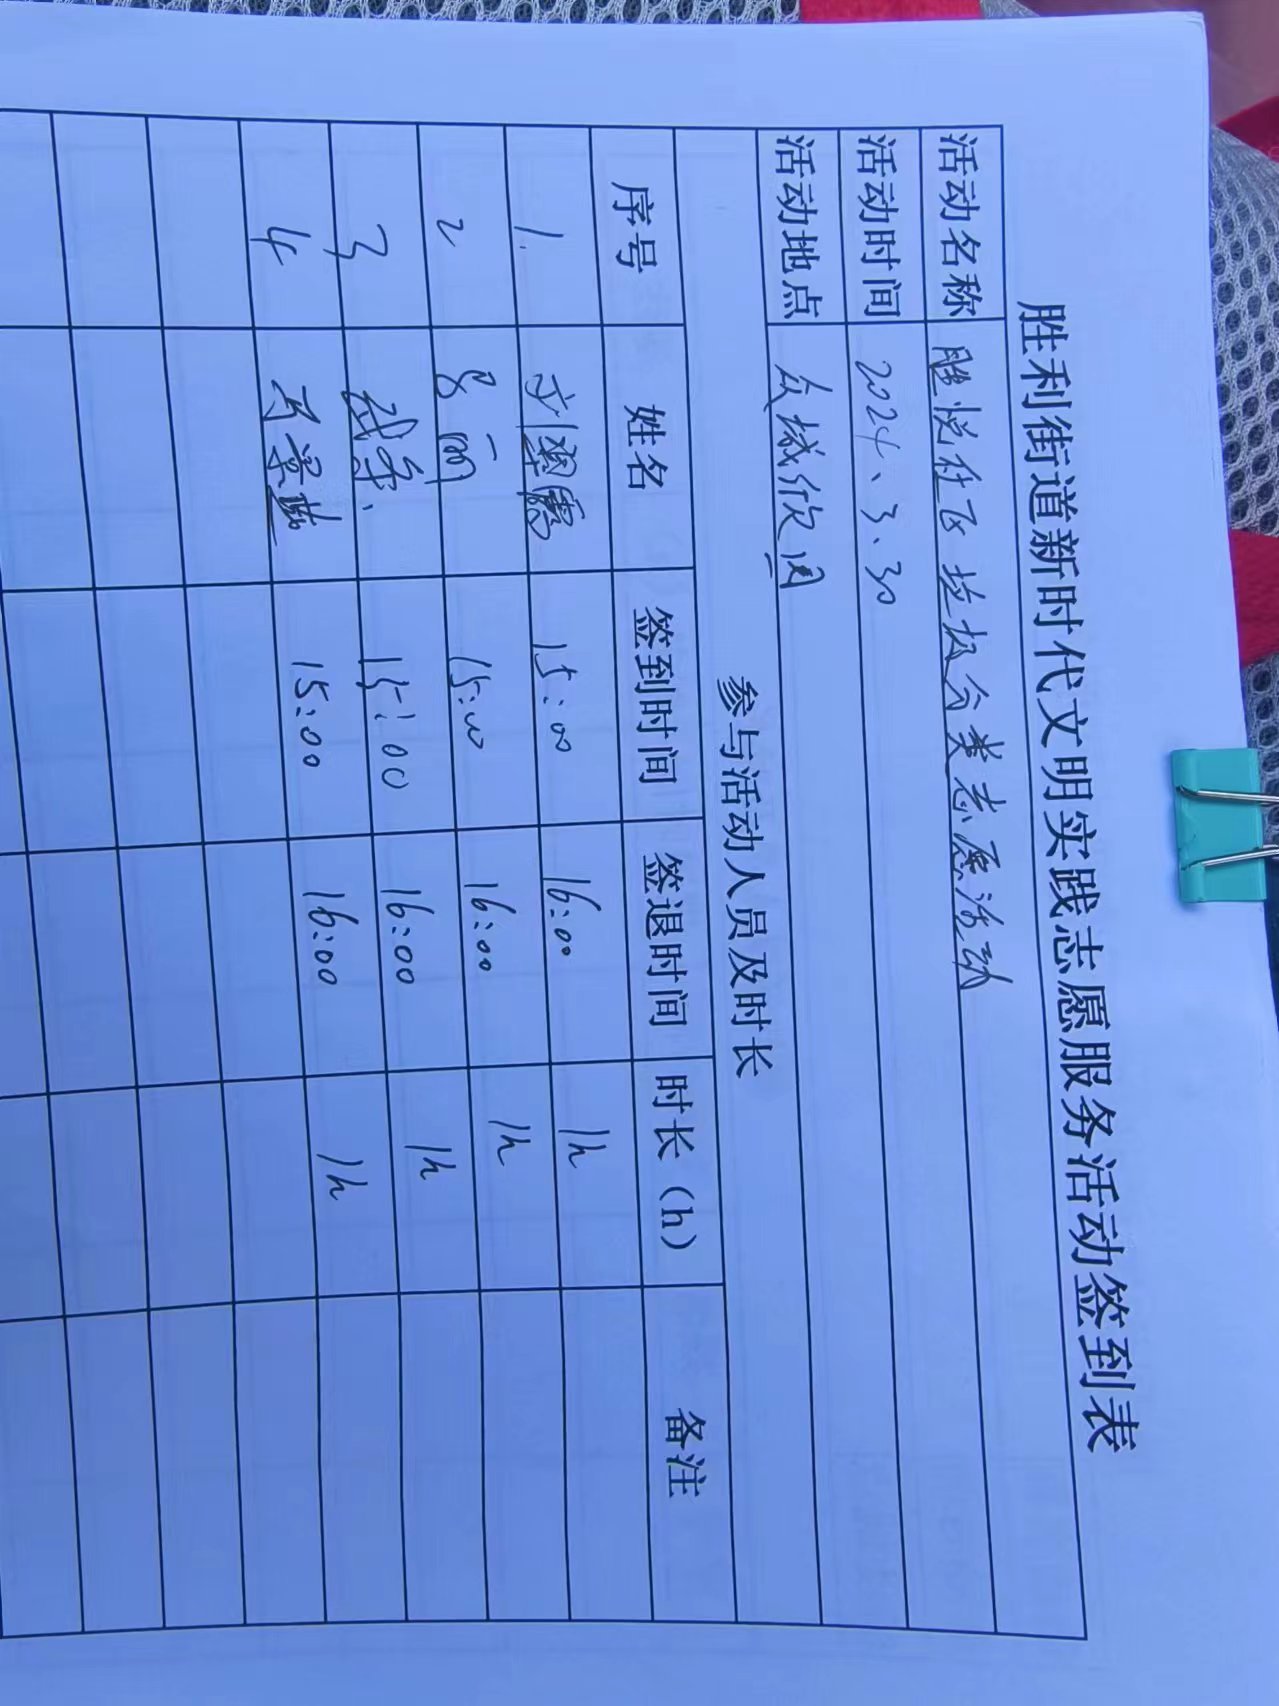 胜利街道新时代文明实践志愿服务活动签到表
活动名称 胜悦社区垃圾分类志愿活动
活动时间 2024、3、30
活动地点 众城欣园
参与活动人员及时长
序号 姓名 签到时间 签退时间 时长（h） 备注
1. 刘 15:00 16:00 1h
2 吕丽 15:00 16:00 1h
3 15:00 16:00 1h
4 15:00 16:00 1h